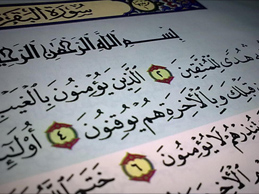 سُورَةُ البَقَرَ
بِسْمِ اللَّهِ الرَّحْمَٰنِ الرَّحِيمِ
هُدًى لِلْمُتَّقِينَ ٢ الَّذِينَ يُؤْمِنُونَ بِالْغَيْبِ
قَبْلِكَ وَبِالْآخِرَةِ هُمْ يُوقِنُونَ ٤ أُولَٰئِ
تُنْذِرْهُمْ لَا يُؤْمِنُونَ ٦ خَتَمَ